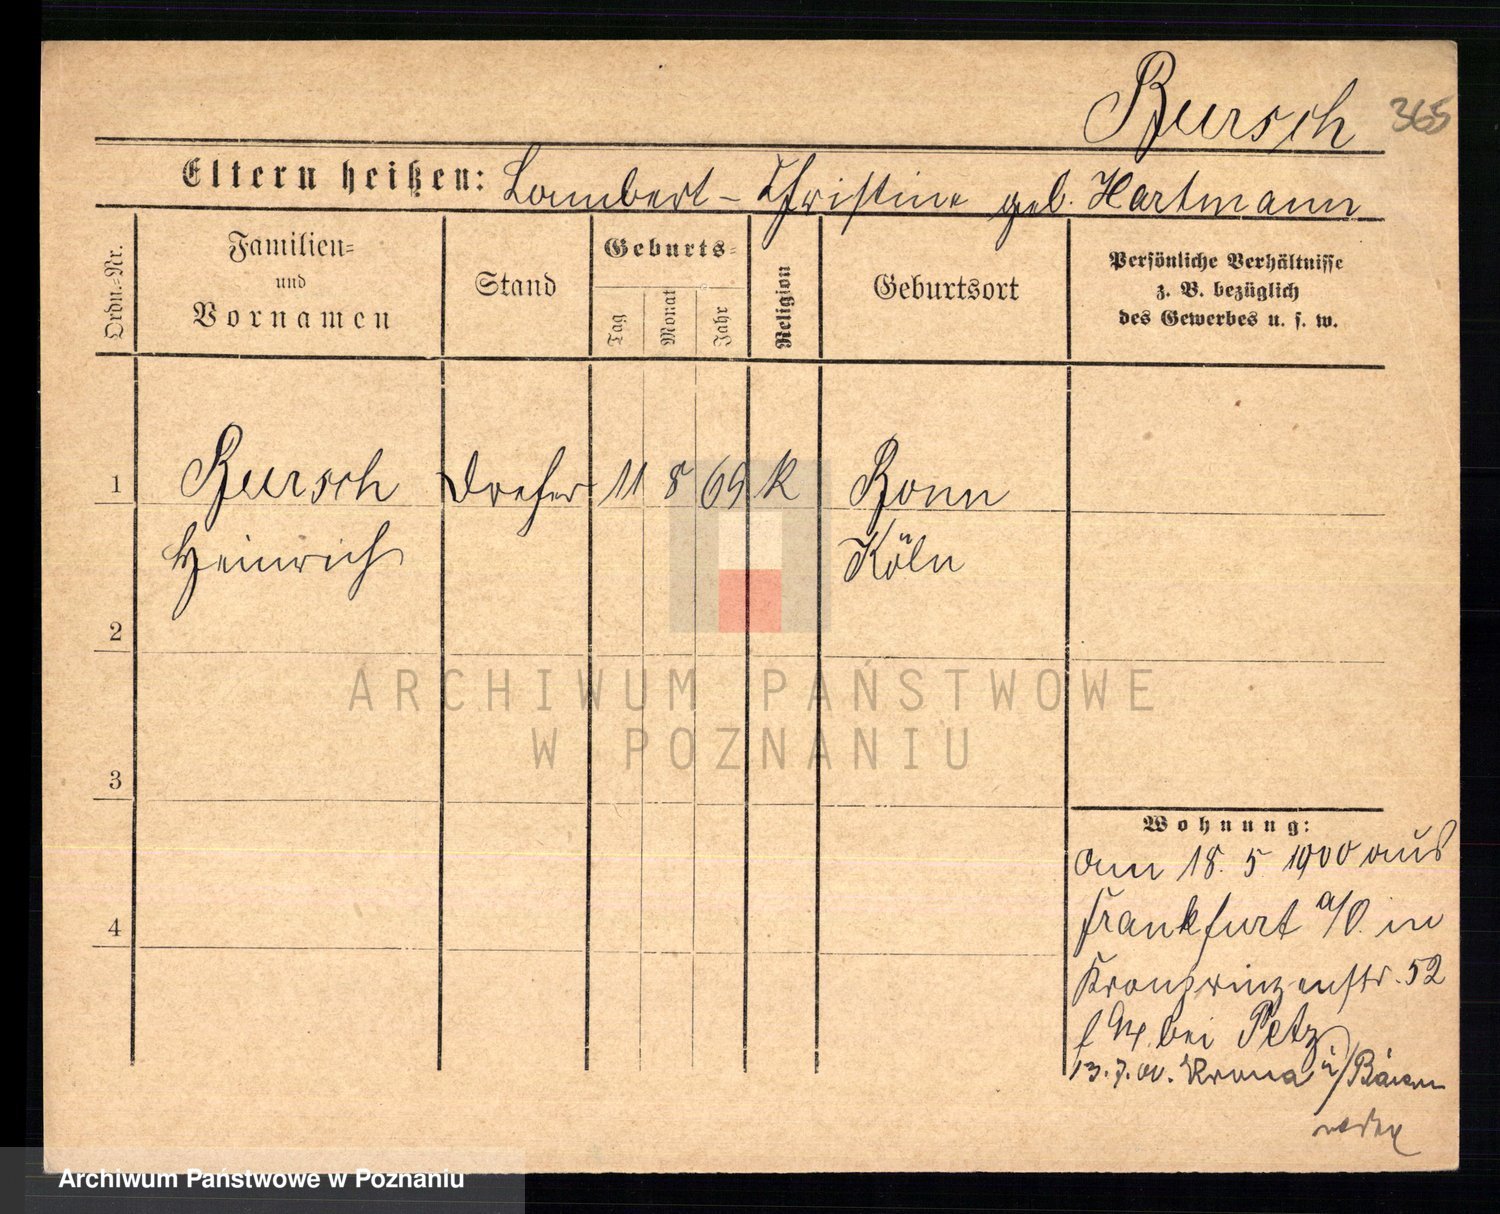 Bursch 365
Eltern heißen: Lambert – Christine geb. Hartmann
Ordn.-Nr.
Familien-
und
Vornamen
Stand
Geburts-
Tag
Monat
Jahr
Religion
Geburtsort
Persönliche Verhältnisse
z. B. bezüglich
des Gewerbes u. s. w.
1 Bursch Dreher 11 8 69 K Bonn
Heinrich Köln
2
3
4
ARCHIWUM PAŃSTWOWE
W POZNANIU
Wohnung:
am 18. 5. 1900 aus
Frankfurt a/O. in
Kronprinzenstr. 52
bei Petz
13.7.00. Krona
Archiwum Państwowe w Poznaniu